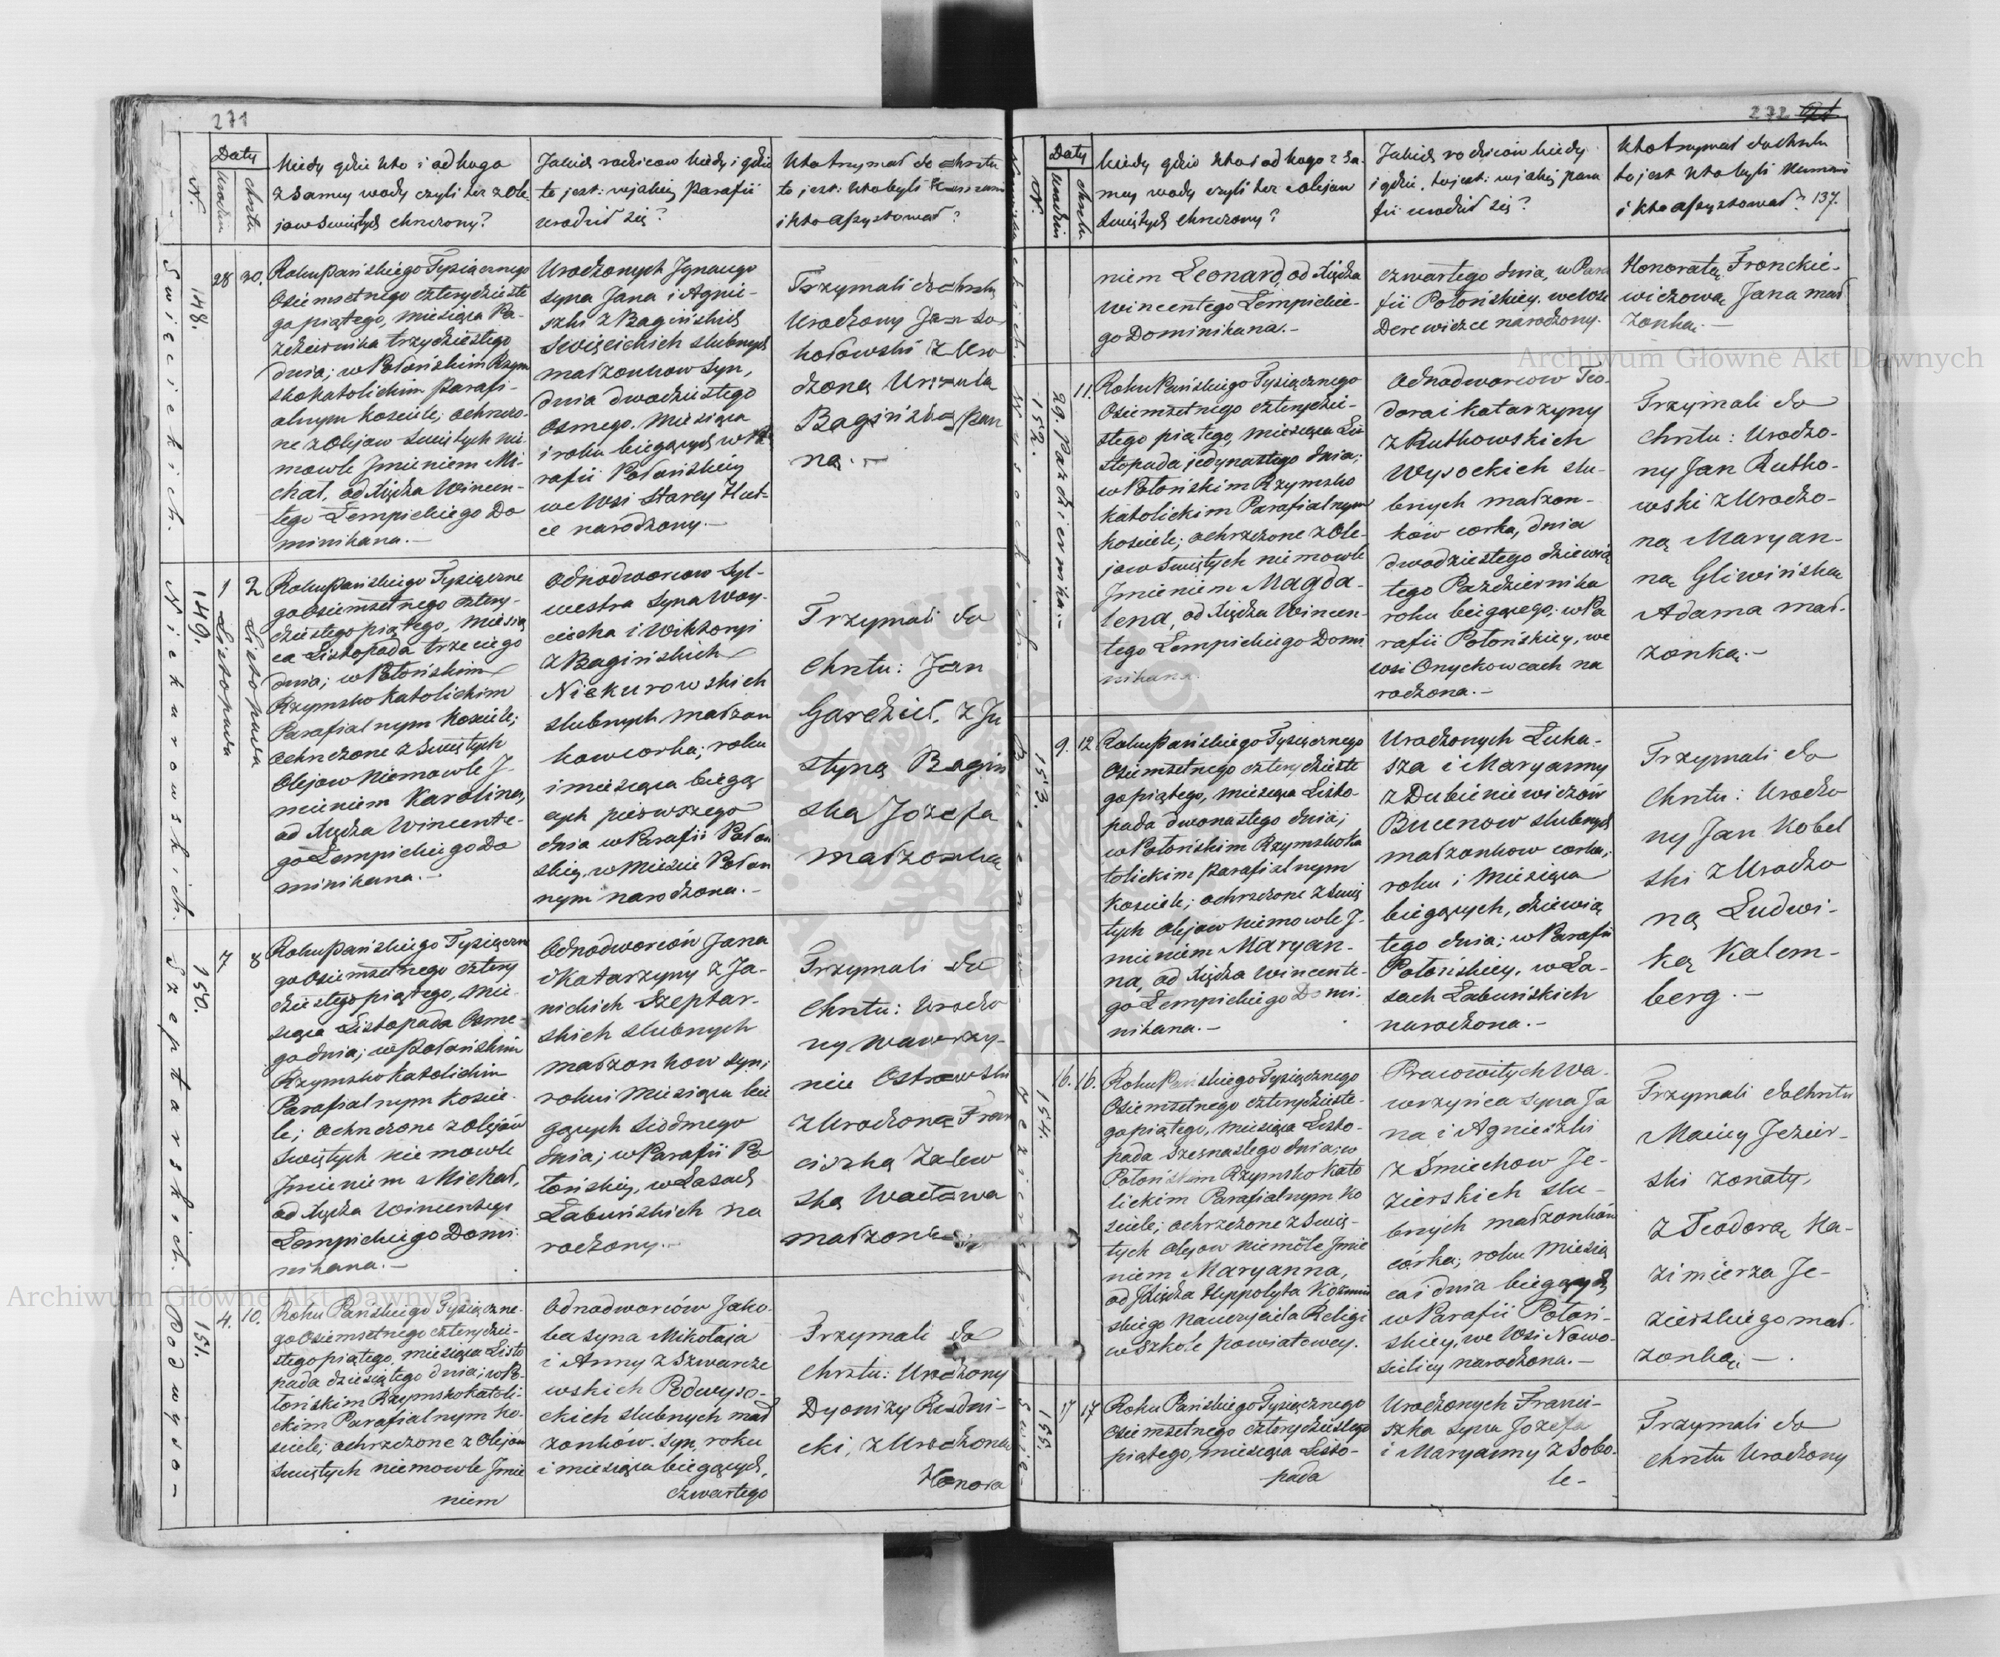 271
Daty
N.
Urodzin
Chrztu
Kiedy gdzie kto i od kogo
z samey wody czyli tez z Ole
jow swiętych chrzczony?
Jakich rodzicow kiedy i gdzie
to jest: w jakiey parafii
urodził się?
Kto trzymał do chrztu
to jest: kto byli Kumami
i kto assystował?
148.
Swięcickich.
28
30.
Roku Pańskiego Tysiącznego
Osiemsetnego czterydzieste
go piątego, miesiąca Pa-
zdziernika trzydziestego
dnia; w Połońskim Rzym
skokatolickim parafi-
alnym kosciele; ochrzczo-
ne z Olejow swiętych nie
mowle Jmieniem Mi-
chał, od Xiędza Wincen-
tego Łempickiego Do
minikana.-
Urodzonych Jgnacego
syna Jana i Agnie-
szki z Bagińskich
Swięcickich slubnych
małzonkow syn,
dnia dwadziestego
osmego, miesiąca
i roku biegących w Pa
rafii Połońskiey
we Wsi Starey Hut-
ce narodzony.-
Trzymali do chrztu
Urodzony Jan So
kołowski z Uro
dzoną Urszulą
Bagińską pan
ną.-
149.
Niekurowskich.
1 Listopada
2 Listopada
Roku Pańskiego Tysiączne
go Osiemsetnego cztery-
dziestego piątego, miesią
ca Listopada trzeciego
dnia; w Połońskim
Rzymsko Katolickim
Parafialnym Kosciele;
ochrzczone z Swiętych
Olejow Niemowle J-
mieniem Karolina,
od Xiędza Wincente-
go Łempickiego Do
minikana.-
Odnodworcow Syl-
westra syna Woy-
ciecha i Wiktoryi
z Bagińskich
Niekurowskich
slubnych małzon
kow corka; roku
i miesiąca biegą
cych pierwszego
dnia w Parafii Połon
skiey, w Miescie Połon
nym narodzona.-
Trzymali do
Chrztu: Jan
Gardzieł, z Ju
styną Bagin
ską Jozefa
małzonką
150.
Szeptarskich.
7
8
Roku Pańskiego Tysiączne
go Osiemsetnego cztery
dziestego piątego, mie-
siąca Listopada Osme-
go dnia; w Połońskim
Rzymsko Katolickim
Parafialnym Koscie-
le; ochrzczone z Olejów
swiętych niemowle
Jmieniem Michał,
od Xiędza Wincentego
Łempickiego Domi
nikana.-
Odnodworców Jana
i Katarzyny z Ja-
nickich Szeptar-
skich slubnych
małzonkow syn;
roku i Miesiąca bie
gących siodmego
dnia; w Parafii Po
łońskiey, w Lasach
Łabuńskich na
rodzony.-
Trzymali do
Chrztu: Urodzo
ny Wawrzy-
niec Ostrowski
z Urodzoną Fran
ciszką Zalew
ską Wacława
małzonką
151.
Podwyso-
4.
10.
Roku Pańskiego Tysiączne-
go Osiemsetnego czterydzie-
stego piątego, miesiąca Listo
pada dziesiątego dnia; w Po-
łońskim Rzymskokatoli-
ckim Parafialnym Ko-
sciele; ochrzczone z Olejow
Swiętych niemowle Jmie
niem
Odnodworców Jako-
ba syna Mikołaja
i Anny z Szwarcze
wskich Podwyso-
ckich slubnych mał
zonków. syn, roku
i miesiąca biegących,
czwartego
Trzymali do
Chrztu: Urodzony
Dyonizy Rudni-
cki, z Urodzoną
Honora
272
N.
Daty
Urodzin
Chrztu
Kiedy gdzie kto i od kogo z sa-
mey wody czyli tez z olejow
Swiętych chrzczony?
Jakich rodziców kiedy
i gdzie, to jest: w jakiey para
fii urodził się?
Kto trzymał do chrztu
to jest kto byli Kumami
i kto assystował?
137.
niem Leonard, od Xiędza
Wincentego Łempickie-
go Dominikana.-
czwartego dnia, w Para
fii Połońskiey, we Wsi
Derewiczce narodzony.
Honoratą Franckie-
wiczową Jana mał
zonką.-
152.
Wysockich.
29. Pazdziernika.-
11.
Roku Pańskiego Tysiącznego
Osiemsetnego czterydzie-
stego piątego, miesiąca Li-
stopada jedynastego dnia;
w Połońskim Rzymsko
Katolickim Parafialnym
Kosciele; ochrzczone z Ole-
jow Swiętych niemowle
Jmieniem Magda-
lena, od Xiędza Wincen-
tego Łempickiego Domi
nikana.
Odnodworcow Teo-
dora i Katarzyny
z Rutkowskich
Wysockich slu-
bnych małzon-
ków corka, dnia
dwodziestego dziewią
tego Pazdziernika
roku biegącego; w Pa
rafii Połońskiey, we
wsi Onyckowcach na
rodzona.-
Trzymali do
Chrztu: Urodzo-
ny Jan Rutko-
wski z Urodzo-
ną Maryan-
ną Gliwińską
Adama mał-
zonką.-
153.
9.
12
Roku Pańskiego Tysiącznego
Osiemsetnego czterydzieste
go piątego, miesiąca Listo-
pada dwonastego dnia;
w Połońskim Rzymskoka
tolickim parafialnym
Kosciele; ochrzczone z Swię
tych Olejow niemowle J-
mieniem Maryan-
na, od Xiędza Wincente-
go Łempickiego Domi-
nikana.-
Urodzonych Łuka-
sza i Maryanny
z Dubieniewiczów
Bucenow slubnych
małzonkow corka;
roku i Miesiąca
biegących, dziewią
tego dnia; w Parafii
Połońskiey, w La-
sach Łabuńskich
narodzona.-
Trzymali do
Chrztu: Urodzo
ny Jan Kobel
ski z Urodzo
ną Ludwi-
ką Kalem-
berg.-
154.
Jezierskich
16.
16.
Roku Pańskiego Tysiącznego
Osiemsetnego czterydzieste-
go piątego, miesiąca Listo-
pada szesnastego dnia; w
Połońskim Rzymsko Kato
lickim Parafialnym Ko
sciele; ochrzczone z Swię-
tych Olejow niemowle Jmie
niem Maryanna,
od Xiędza Hyppolyta Kozmin
skiego Nauczyciela Religii
w Szkole powiatowey.
Pracowitych Wa-
wrzynca syna Ja
na, i Agnieszki
z Smiechow Je-
zierskich slu-
bnych małzonków
córka; roku Miesią
ca i dnia biegących
w Parafii Połoń-
skiey, we Wsi Nowo-
sielicy narodzona.-
Trzymali do chrztu
Maciey Jezier-
ski zonaty,
z Teodorą Ka-
zimierza Je-
zierskiego mał-
zonką.-
155.
Swię-
17
17
Roku Pańskiego Tysiącznego
Osiemsetnego czterydziestego
piątego, miesiąca Listo-
pada
Urodzonych Franci-
szka syna Jozefa
i Maryanny z Sobo-
le-
Trzymali do
chrztu Urodzony
Archiwum Główne Akt Dawnych
Archiwum Główne Akt Dawnych